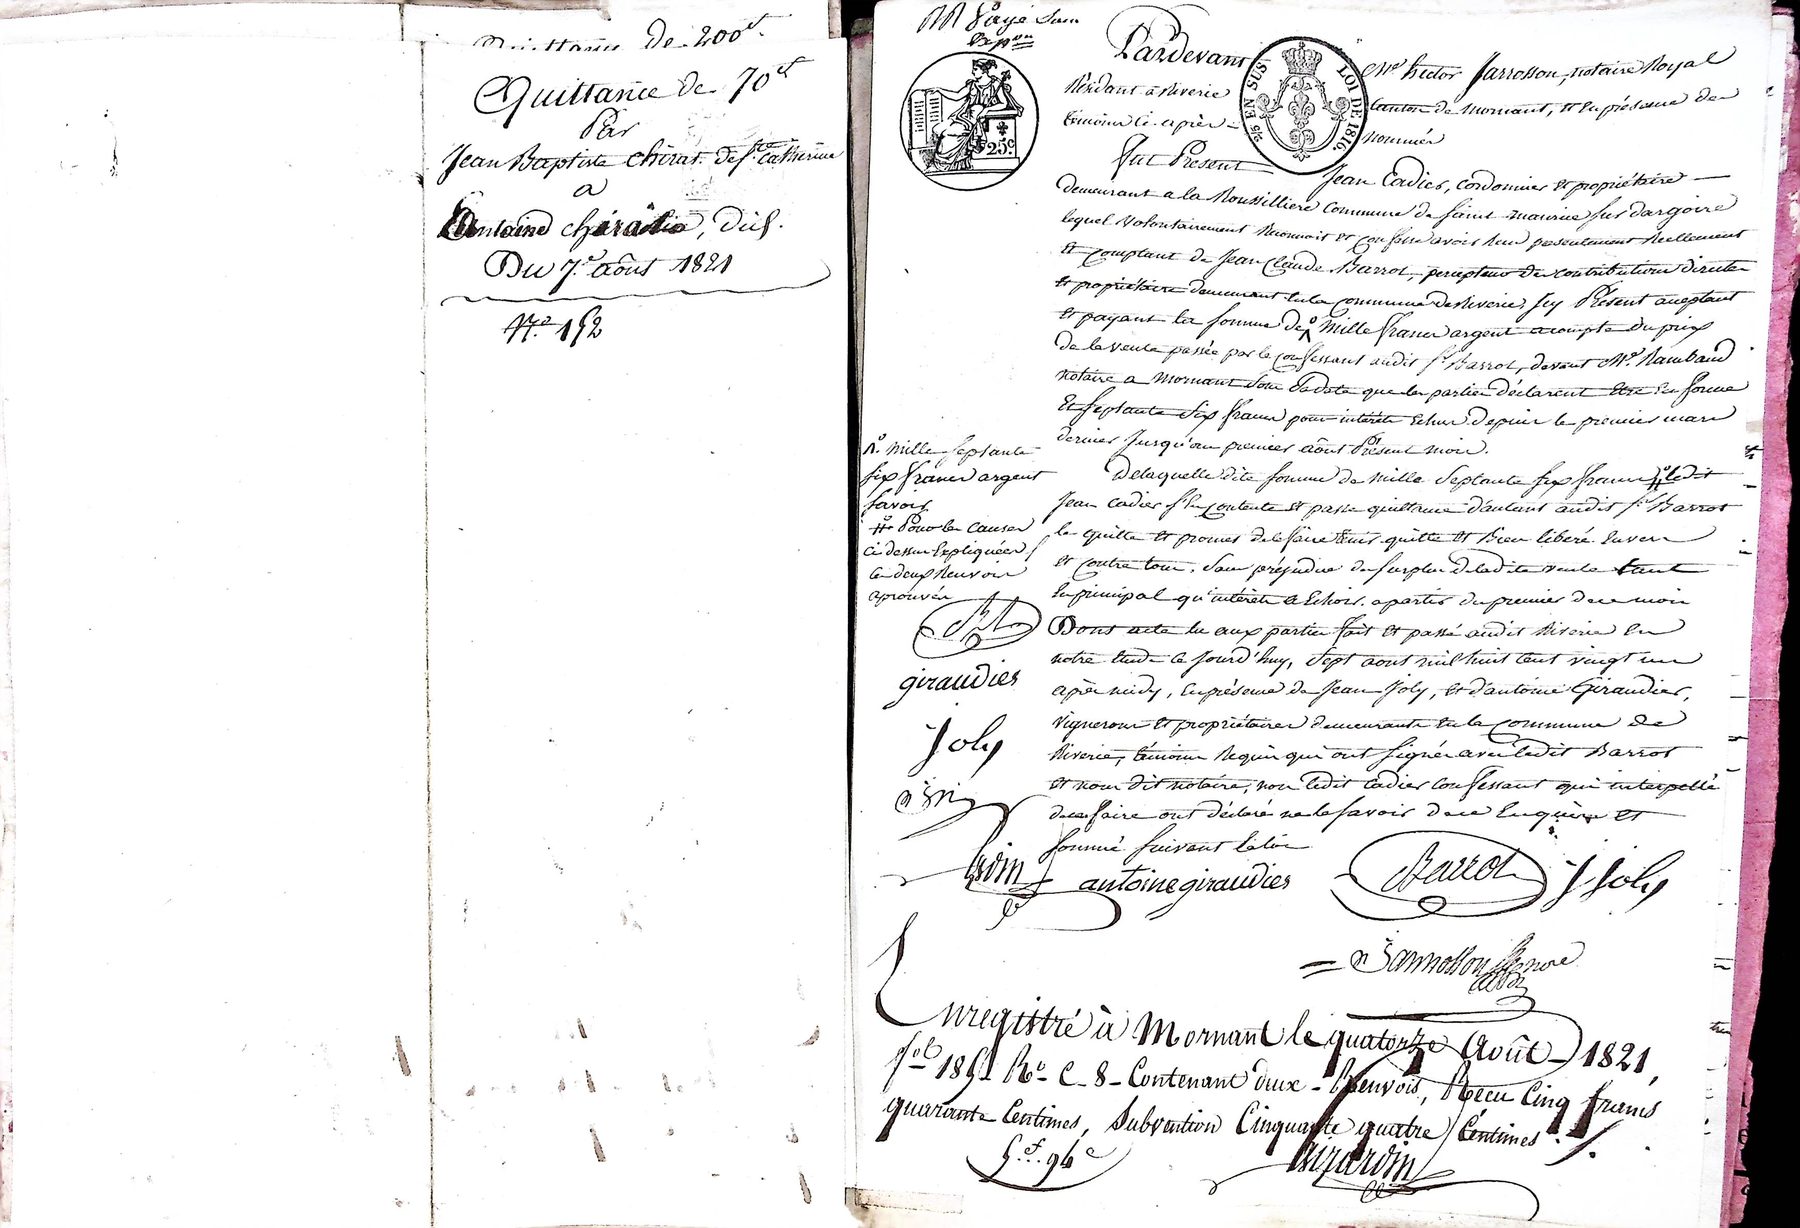 Quittance de 200 ct
Quittance de 70 ct
Par
Jean Baptiste Chirat, de Ste Catherine
a
Antoine
Du 7e. août 1821
No. 152
Payé Sans
Expon
Pardevant Me hector Jarrosson, notaire Royal
Résidant à Riverie canton de Mornant, et En présence des
témoins ci-après nommés
25 EN SUS. LOI DE 1816.
25c
Fut Présent Jean Cadier, cordonnier et propriétaire
demeurant a la Roussilliere commune de Saint maurice sur dargoire
lequel volontairement Reconnait et confesse avoir Reçu presentement Réellement
et comptant de Jean Claude Barrot, percepteur des contributions directes
et propriétaire demeurant En la commune de Riverie, Icy Présent aceptant
et payant la somme de mille francs argent acompte du prix
de la vente passée par le confessant audit sr. Barrot, devant Me. Rambaud
notaire a mornant sous sa date que les parties déclarent Etre En forme
Et septante six francs pour intérêts Echus depuis le premier mars
dernier Jusqu'au premier août Présent mois.
De laquelle dite somme de mille septante six francs ledit
Jean Cadier s'En contente et passe quittance d'autant audit sr. Barrot
le quitte et promet de le faire tenir quitte et Bien libéré Envers
et contre tous, sans préjudice du surplus de ladite vente tant
En principal qu'intérêts a Echoir, a partir du premier de ce mois
Dont acte lu aux parties fait et passé audit Riverie En
notre Etude ce jourd'huy, sept aout mil huit cent vingt un
après midy, En présence de Jean Joly, et d'antoine Giraudier,
vignerons et propriétaires demeurants En la commune de
Riverie, témoins Requis qui ont signés avec ledit Barrot
et nous dit notaire, non ledit Cadier confessant qui interpellé
de ce faire ont déclaré ne le savoir de ce Enquis et
sommé suivant la loi
mille septante
six francs argent
savoir
Pour les causes
ci dessus Expliquées
les deux Renvois
aprouvés
giraudier
Joly
antoine giraudier Barrot J Joly
Jarrosson
Enregistré à Mornant le quatorze Août 1821,
fol 185 Ro C 8 Contenant deux Renvois, Reçu Cinq francs
quarante Centimes, Subvention Cinquante quatre Centimes.
5f. 94c
Girardin